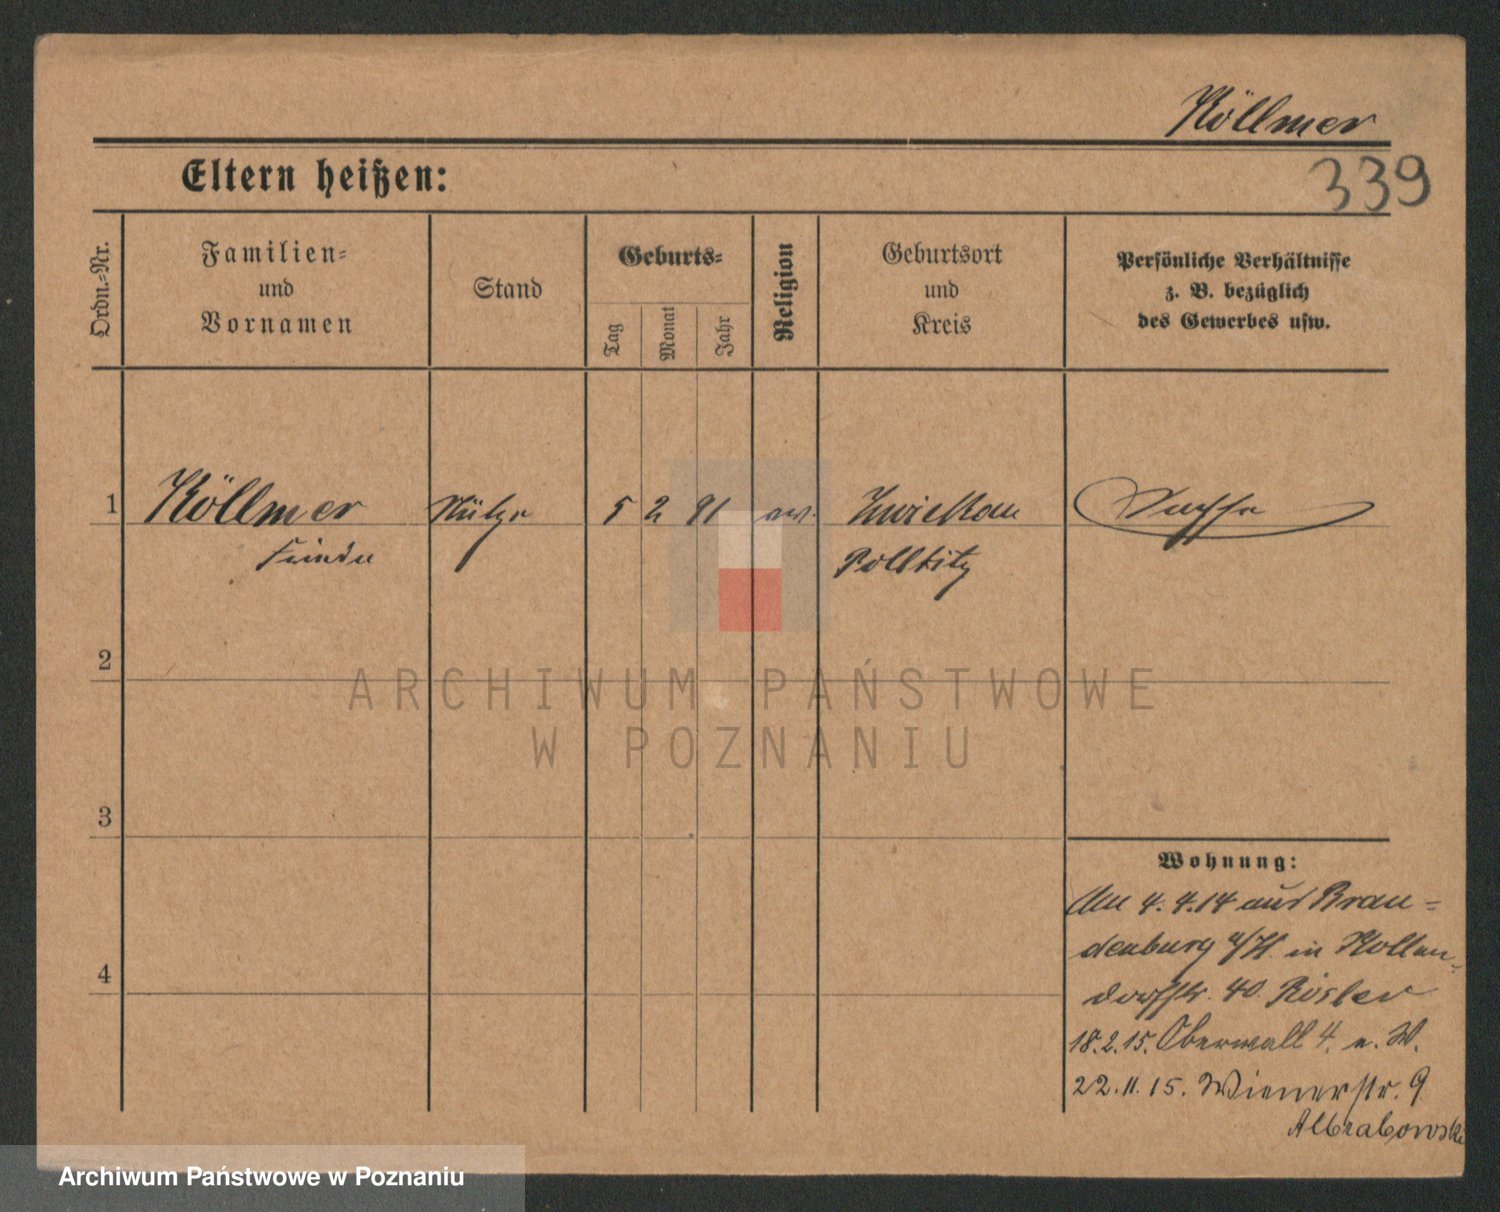 Köllmer
339
Eltern heißen:
Ordn.-Nr.
Familien-
und
Vornamen
Stand
Geburts-
Tag
Monat
Jahr
Religion
Geburtsort
und
Kreis
Persönliche Verhältnisse
z. B. bezüglich
des Gewerbes usw.
1
Köllmer
Stütze
5
2
91
ev.
Zwickau
Sachse
Frieda
Pöllbitz
2
ARCHIWUM PAŃSTWOWE
W POZNANIU
3
Wohnung:
4
Am 4.4.14 aus Bran=
denburg a/H. in Hollen=
dorffstr. 40. Rösler
18.2.15. Oberwall 4. n. W.
22.11.15. Wienerstr. 9
Albrabowski
Archiwum Państwowe w Poznaniu